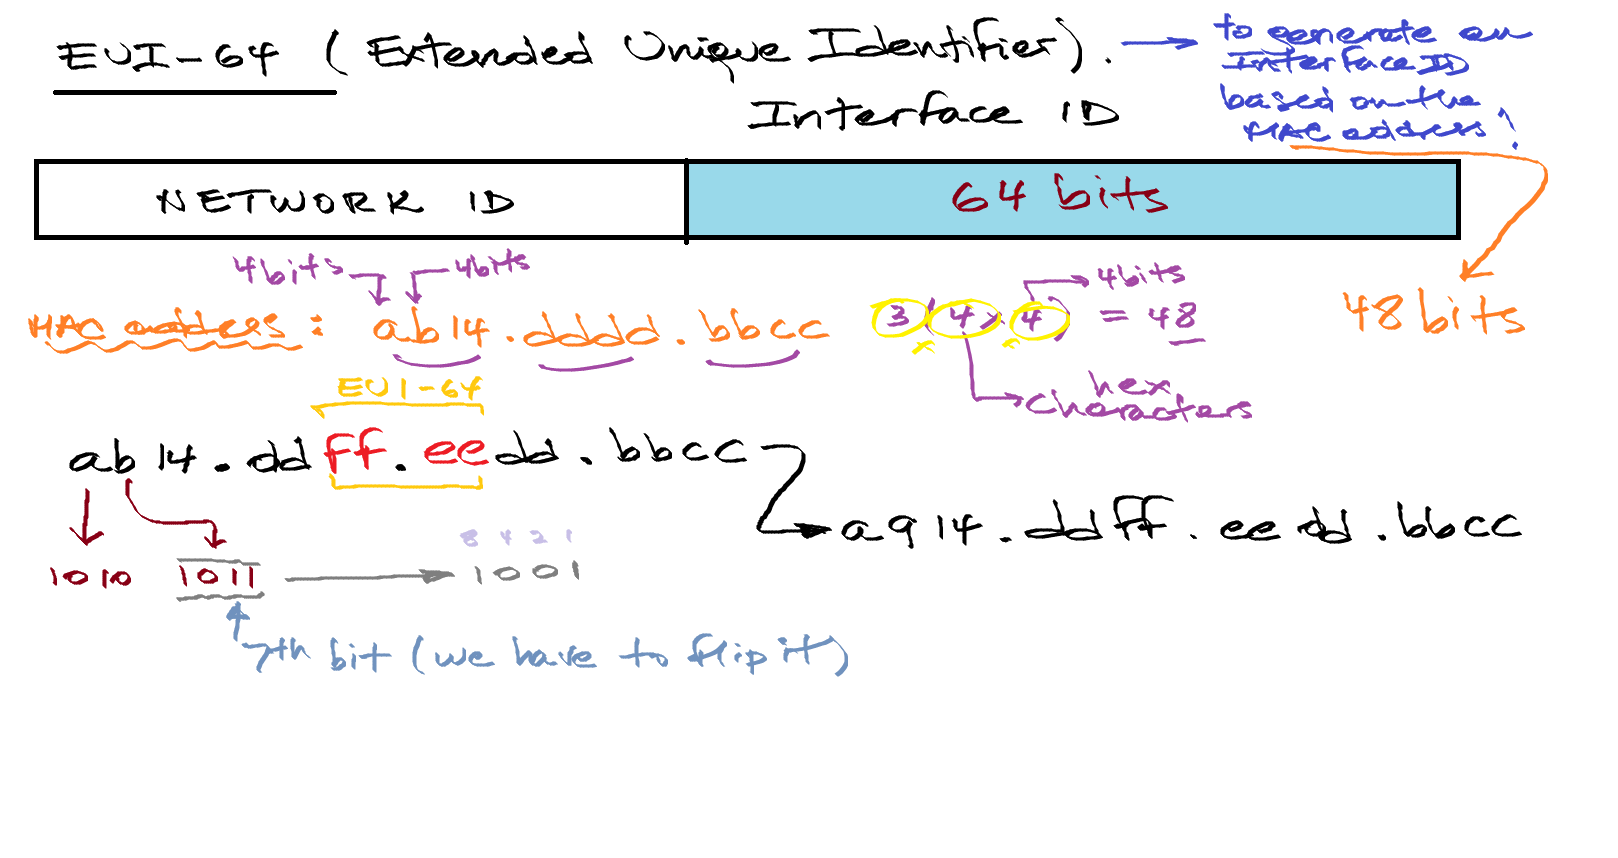 EUI-64 (Extended Unique Identifier). → to generate an
Interface ID
based on the
MAC address!
Interface ID
NETWORK ID
64 bits
4bits
4bits
4bits
MAC address: ab14.dddd.bbcc
3(4×4) = 48
48 bits
EUI-64
hex
characters
ab14.ddff.eedd.bbcc
a914.ddff.eedd.bbcc
8 4 2 1
1010 1011 → 1001
7th bit (we have to flip it)